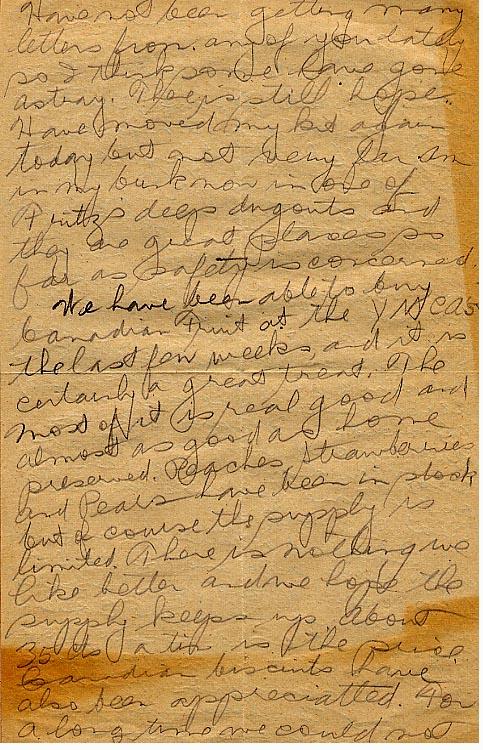 Have not been getting many
letters from any of you lately
so I think some have gone
astray. There is still hope.
Have moved my kit again
today but not very far am
in my bunk now in one of
Fritz's deep dugouts and
they are great places so
far as safety is concerned.
We have been able to buy
Canadian Fruit at the YMCA's
the last few weeks, and it is
certainly a great treat. The
most of it is real good and
almost as good as home
preserved. Peaches, Strawberries
and Pears have been in stock
but of course the supply is
limited. There is nothing we
like better and we hope the
supply keeps up. About
35 cts a tin is the price.
Canadian biscuits have
also been appreciatted. For
a long time we could not